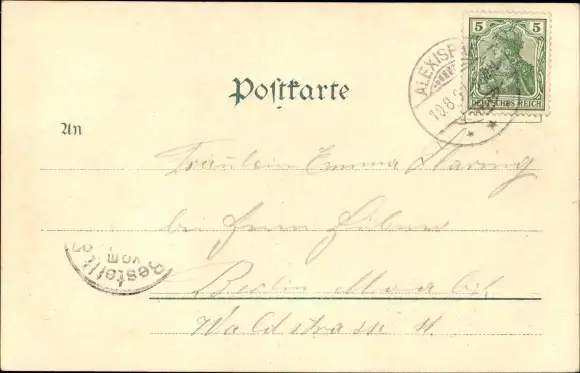 5 5
DEUTSCHES REICH
ALEXISB
10.8.
Postkarte
An
Fräulein Emma Haring
bei Frau Hübner
Berlin Moabit
Waldstrasse 4.
Bestellt
vom